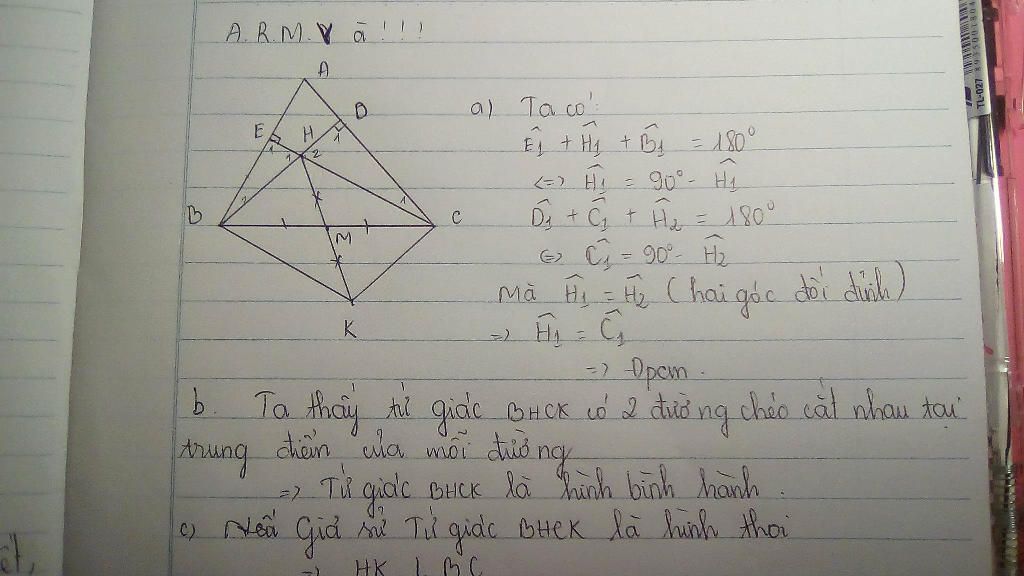 A.R.M.Y à!!!
A
D
E
H
1
1
1
2
1
1
B
C
M
K
a) Ta có:
Ê₁ + Ĥ₁ + B̂₁ = 180°
<=> Ĥ₁ = 90° - Ĥ₁
D̂₁ + Ĉ₁ + Ĥ₂ = 180°
<=> Ĉ₁ = 90° - Ĥ₂
Mà Ĥ₁ = Ĥ₂ (hai góc đối đỉnh)
=> Ĥ₁ = Ĉ₁
=> Đpcm.
b. Ta thấy tứ giác BHCK có 2 đường chéo cắt nhau tại
trung điểm của mỗi đường
=> Tứ giác BHCK là hình bình hành.
c) Giả sử Tứ giác BHCK là hình thoi
=> HK ⊥ BC
TL-027